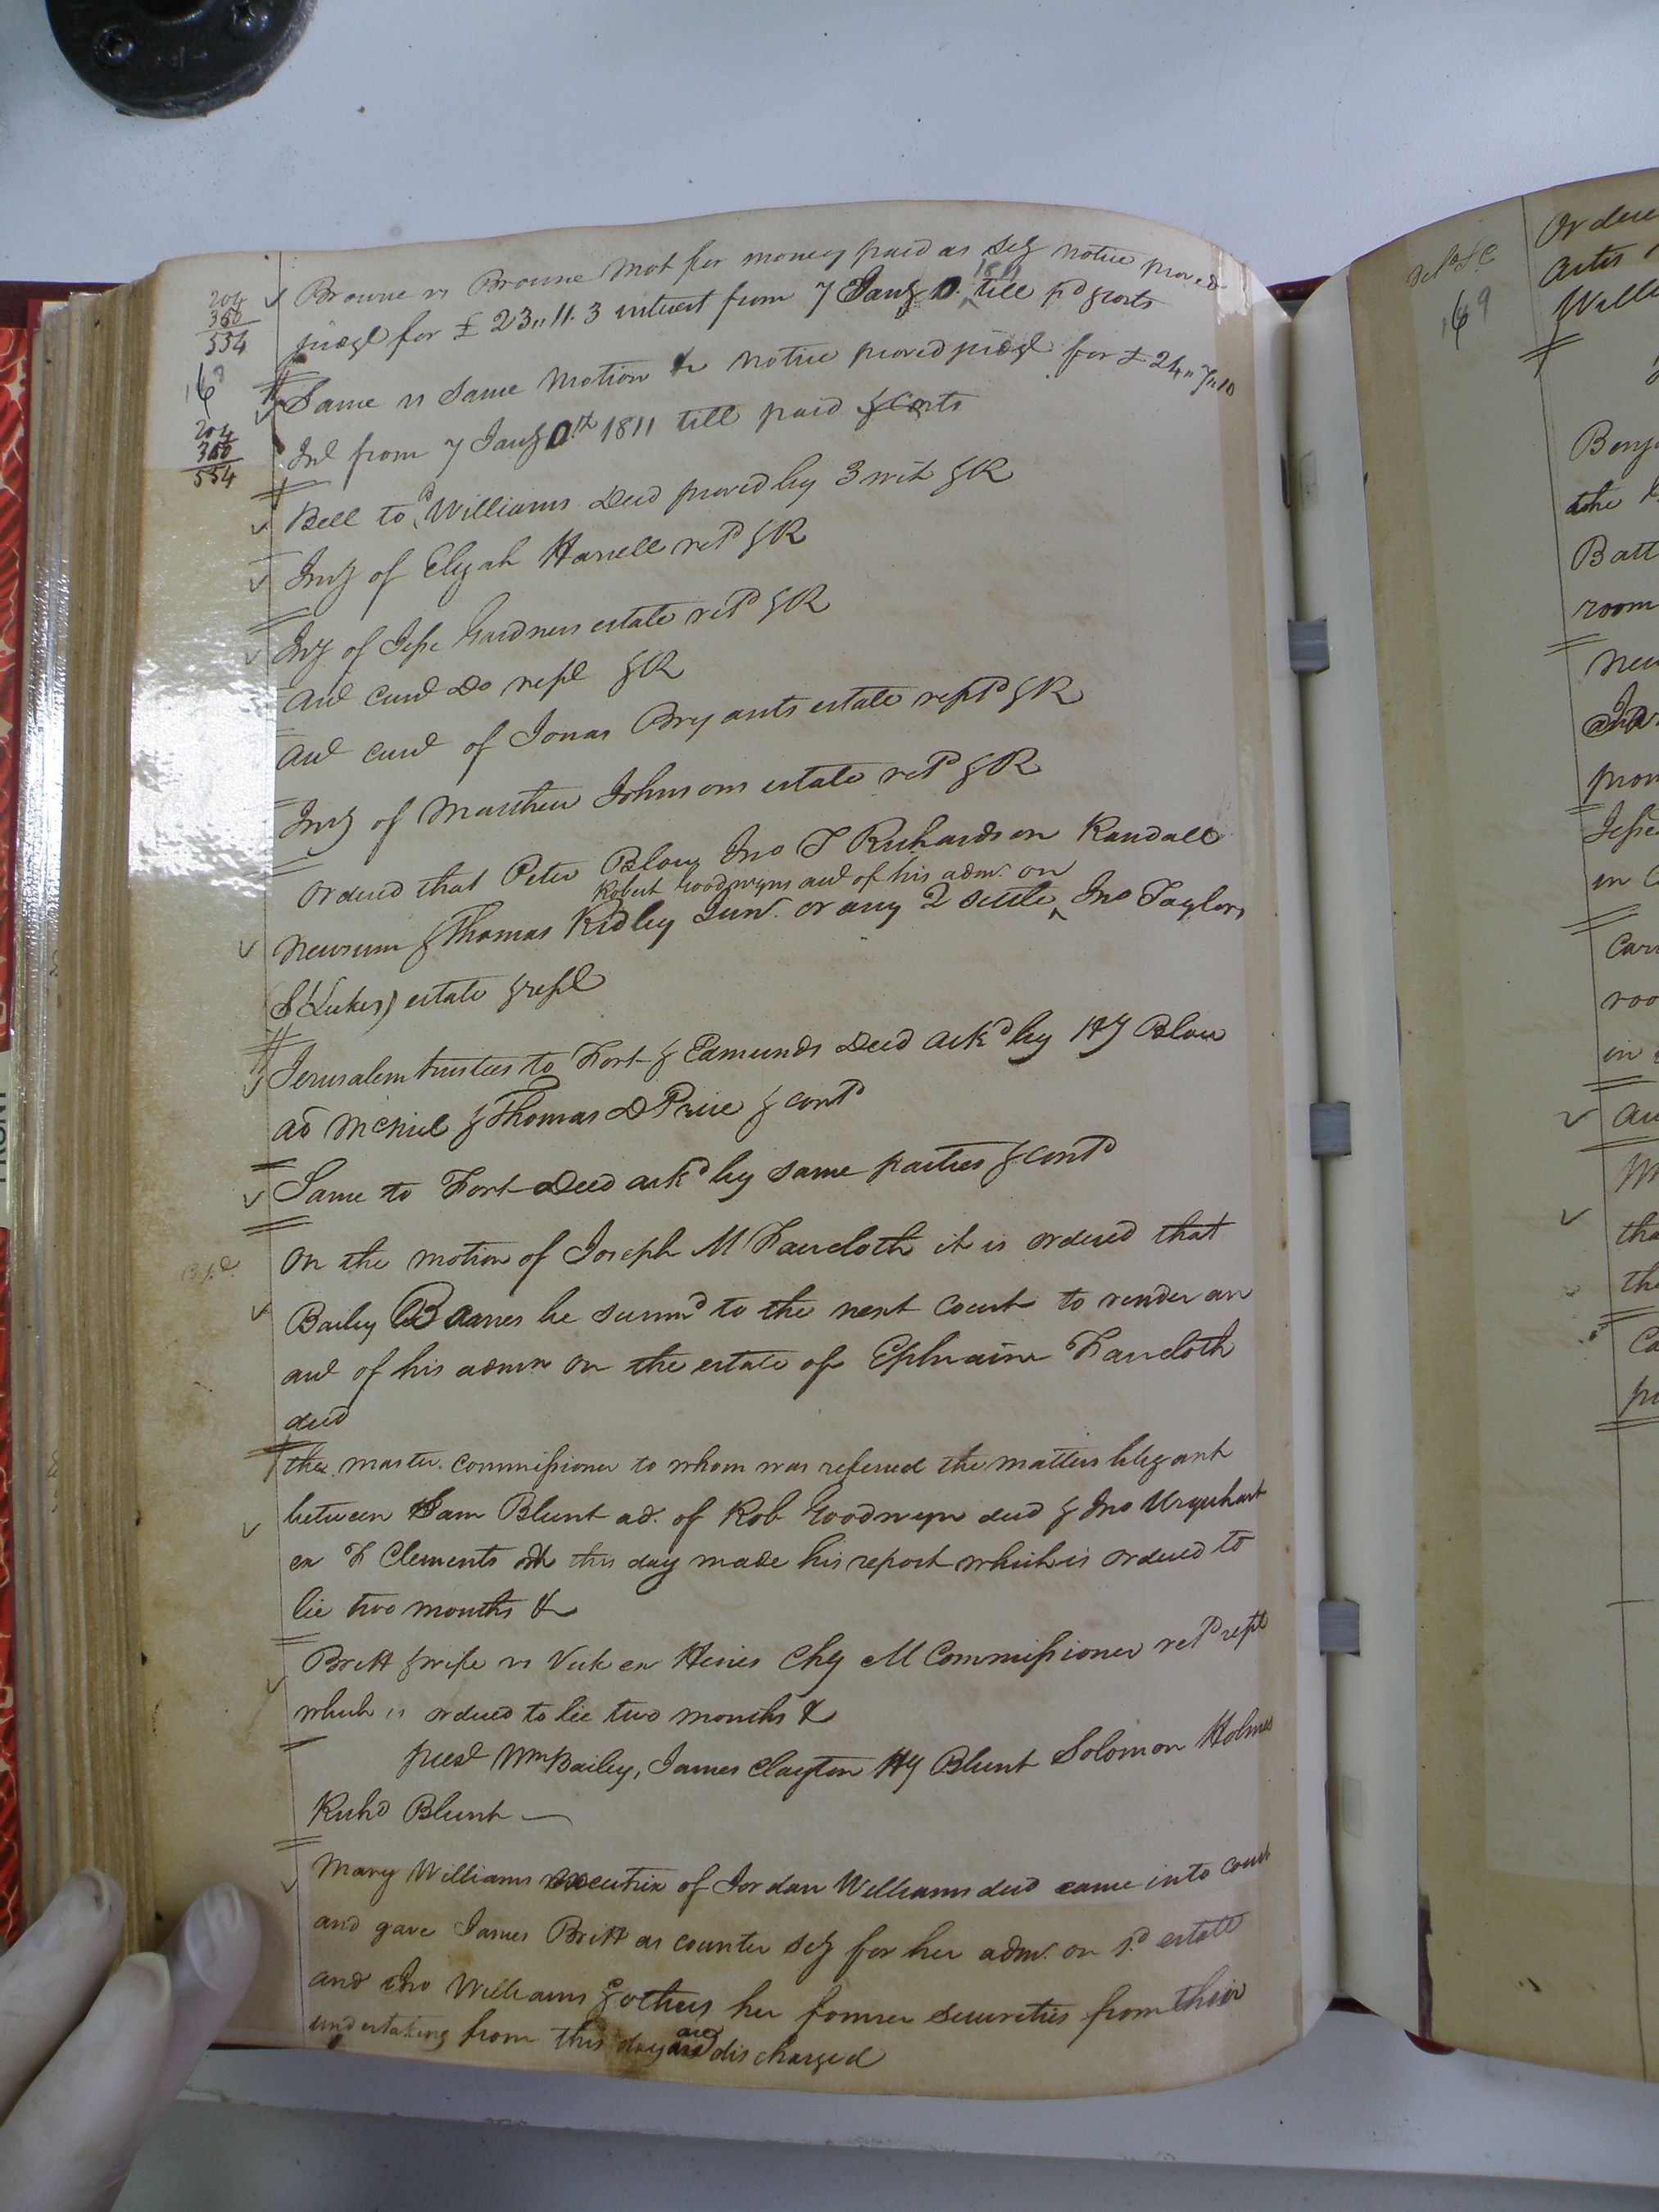 204
350
554
Browne vs Browne Mot for money paid as Secy notice proved
judgt for £ 23,, 11. 3 interest from 7 Jany 1811 till pd & costs
168
Same vs Same Motion & notice proved judgt for £ 24,, 7,, 10
Int from 7 Jany 1811 till paid & costs
204
350
554
Bell to Williams Deed proved by 3 wit & R
Invy of Elijah Harrell retd & R
Invy of Jesse Gardners estate retd & R
Aud Curt Do rept & R
Aud Curt of Jonas Bryants estate reptd & R
Invy of Matthew Johnsons estate retd & R
Ordered that Peter Blow, Jno T Richardson Randall
Robert Goodwyns aud of his admn. on
Newsum & Thomas Ridley Junr. or any 2 settle Jno Taylors
(S Lukes) estate & rept
Jerusalem trustees to Fort & Edmunds Deed ackd by Hy Blow
ad McNiel & Thomas D Price & contd
Same to Fort Deed ackd by same parties & contd
On the motion of Joseph M Faircloth it is ordered that
Bailey Barnes be summd to the next Court to render an
aud of his admn on the estate of Ephraim Faircloth
decd
The master Commissioner to whom was referred the matters litigant
between Sam Blunt ad. of Rob Goodwyn decd & Jno Urquhart
ex F Clements this day made his report which is ordered to
lie two months &
Britt & wife vs Vick ex Hines Chy M Commissioner retd rept
which is ordered to lie two months &
Prest Wm Bailey, James Clayton Hy Blunt Solomon Holmes
Richd Blunt
Mary Williams executrix of Jordan Williams decd came into court
and gave James Britt as counter Secy for her admn. on sd. estate
and Jno Williams & others her former securities from their
undertaking from this day are discharged
169
Orde
Wille
Benj
the
Batt
room
New
and
Jesse
in C
Car
roo
in
au
M
tha
the
Ca